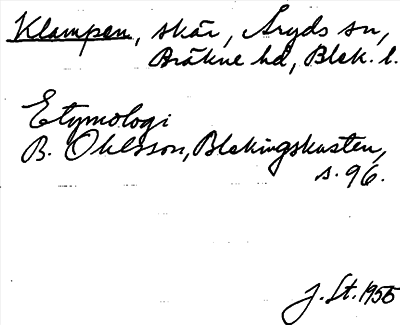 Klampen, skär, Åryds sn,
Bräkne hd, Blek. l.
Etymologi
B. Ohlsson, Blekingskusten,
s. 96.
J. St. 1955